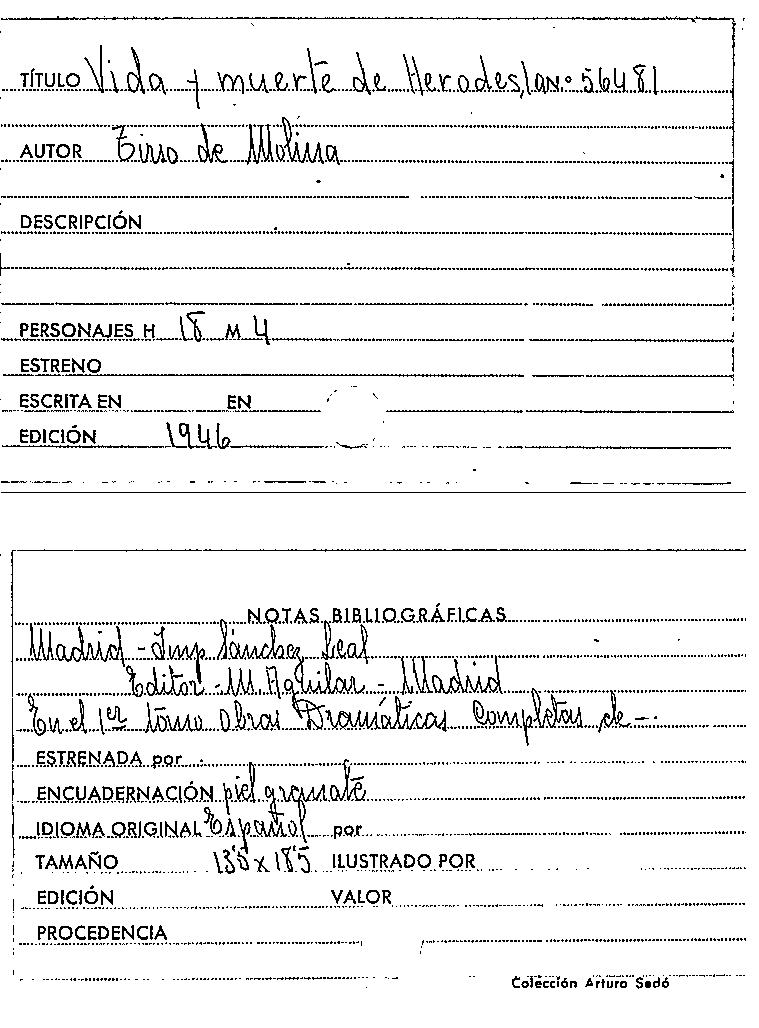 TÍTULO Vida y muerte de Herodes, la N.º 56481
AUTOR Tirso de Molina
DESCRIPCIÓN
PERSONAJES H 18 M 4
ESTRENO
ESCRITA EN EN
EDICIÓN 1946
NOTAS BIBLIOGRÁFICAS
Madrid - Imp Sánchez Leal
Editor - M. Aguilar - Madrid
En el 1er tomo Obras Dramáticas Completas de -.
ESTRENADA por
ENCUADERNACIÓN piel granate
IDIOMA ORIGINAL Español por
TAMAÑO 13'5 x 18'5 ILUSTRADO POR
EDICIÓN VALOR
PROCEDENCIA
Colección Arturo Sedó